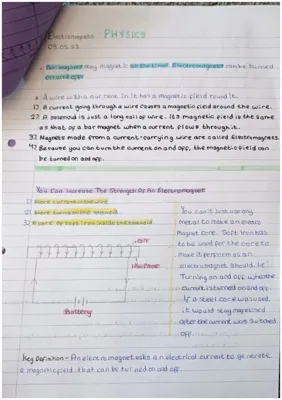 Electromagnets PHYSICS
03.05.23
• Bar magnets stay magnetic all the time. Electromagnets can be turned
on and off
• A wire with a current in it has a magnetic field round it.
1) A current going through a wire causes a magnetic field around the wire.
2) A solenoid is just a long coil of wire. Its magnetic field is the same
as that of a bar magnet when a current flows through it.
3) Magnets made from a current-carrying wire are called Electromagnets.
4) Because you can turn the current on and off, the magnetic field can
be turned on and off.
You Can Increase The Strength Of An Electromagnet
1) More current in the wire.
2) More turns on the solenoid.
3) A core of soft iron inside the solenoid.
Battery
You can't just use any
metal to make an electro
magnet core. Soft iron has
to be used for the core to
make it perform as an
electromagnet should. i.e:
Turning on and off when the
current is turned on and off.
If a steel core was used,
it would stay magnetised
after the current was switched
off.
Key Definition - An electromagnet uses an electrical current to generate
a magnetic field that can be turned on and off.